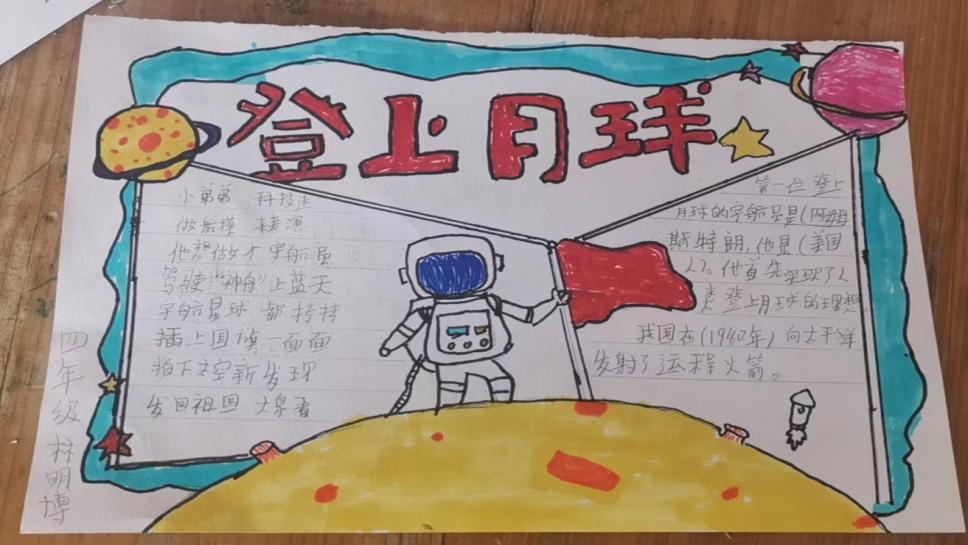 登上月球
小弟弟 科技迷
做航模 表演
他想做个宇航员
驾驶"神舟"上蓝天
宇航星球都转转
插上国旗一面面
拍下太空新发现
发回祖国大家看
第一位登上
月球的宇航员是(阿姆
斯特朗,他是(美国
人)。他首先实现了人
类登上月球的理想
我国在(1940年)向太平洋
发射了运程火箭。
四年级林明博